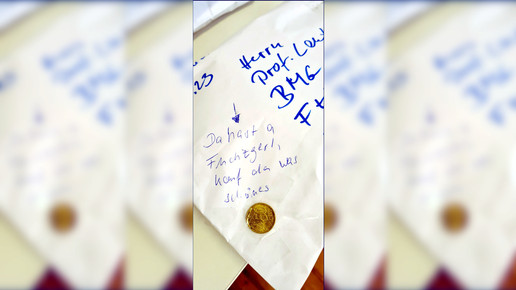 .23
Herrn
Prof. Lau
BMG
Da hast a
Fuchzgerl,
kauf da was
schönes